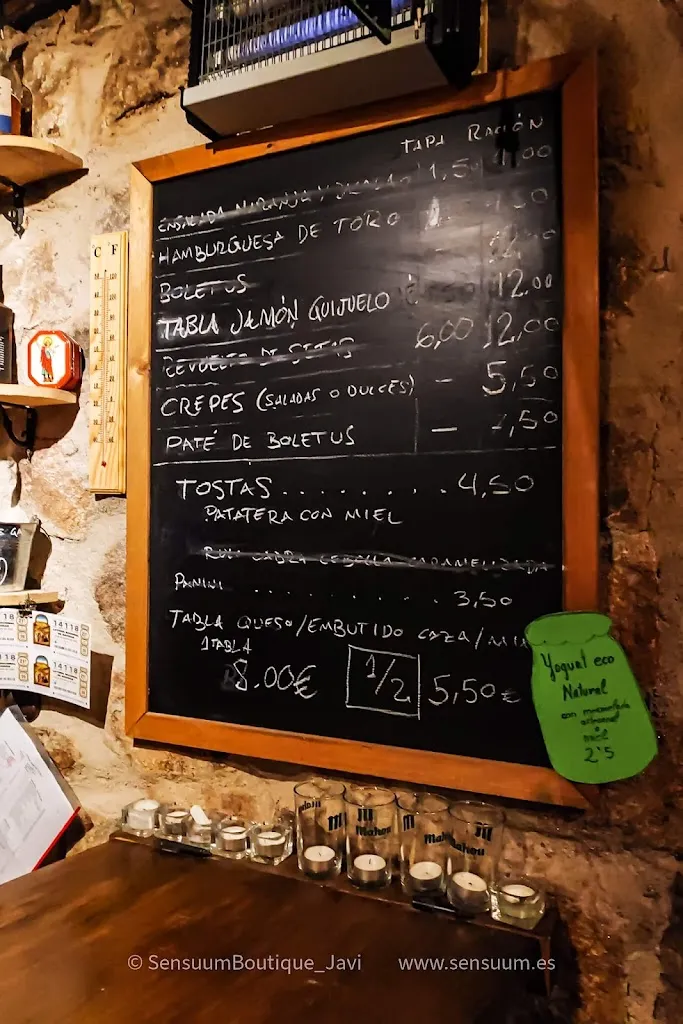 TAPA RACIÓN
ENSALADA NARANJA Y 1,50
HAMBURGUESA DE TORO
BOLETUS
TABLA JAMÓN GUIJUELO 12.00
REVUELTO DE SETAS 6,00 12,00
CREPES (SALADAS O DULCES) — 5,50
PATÉ DE BOLETUS —
TOSTAS . . . . . . . . 4,50
PATATERA CON MIEL
RULO CABRA CEBOLLA CARAMELIZADA
PANINI . . . . . . . . . . 3,50
TABLA QUESO/EMBUTIDO CAZA/MIX
1 TABLA
8.00€ 1/2 5,50€
Yogual eco
Natural
con
artesanal
miel
2'5
C F
14118
14118
Mahou
Mahou
© SensuumBoutique_Javi www.sensuum.es